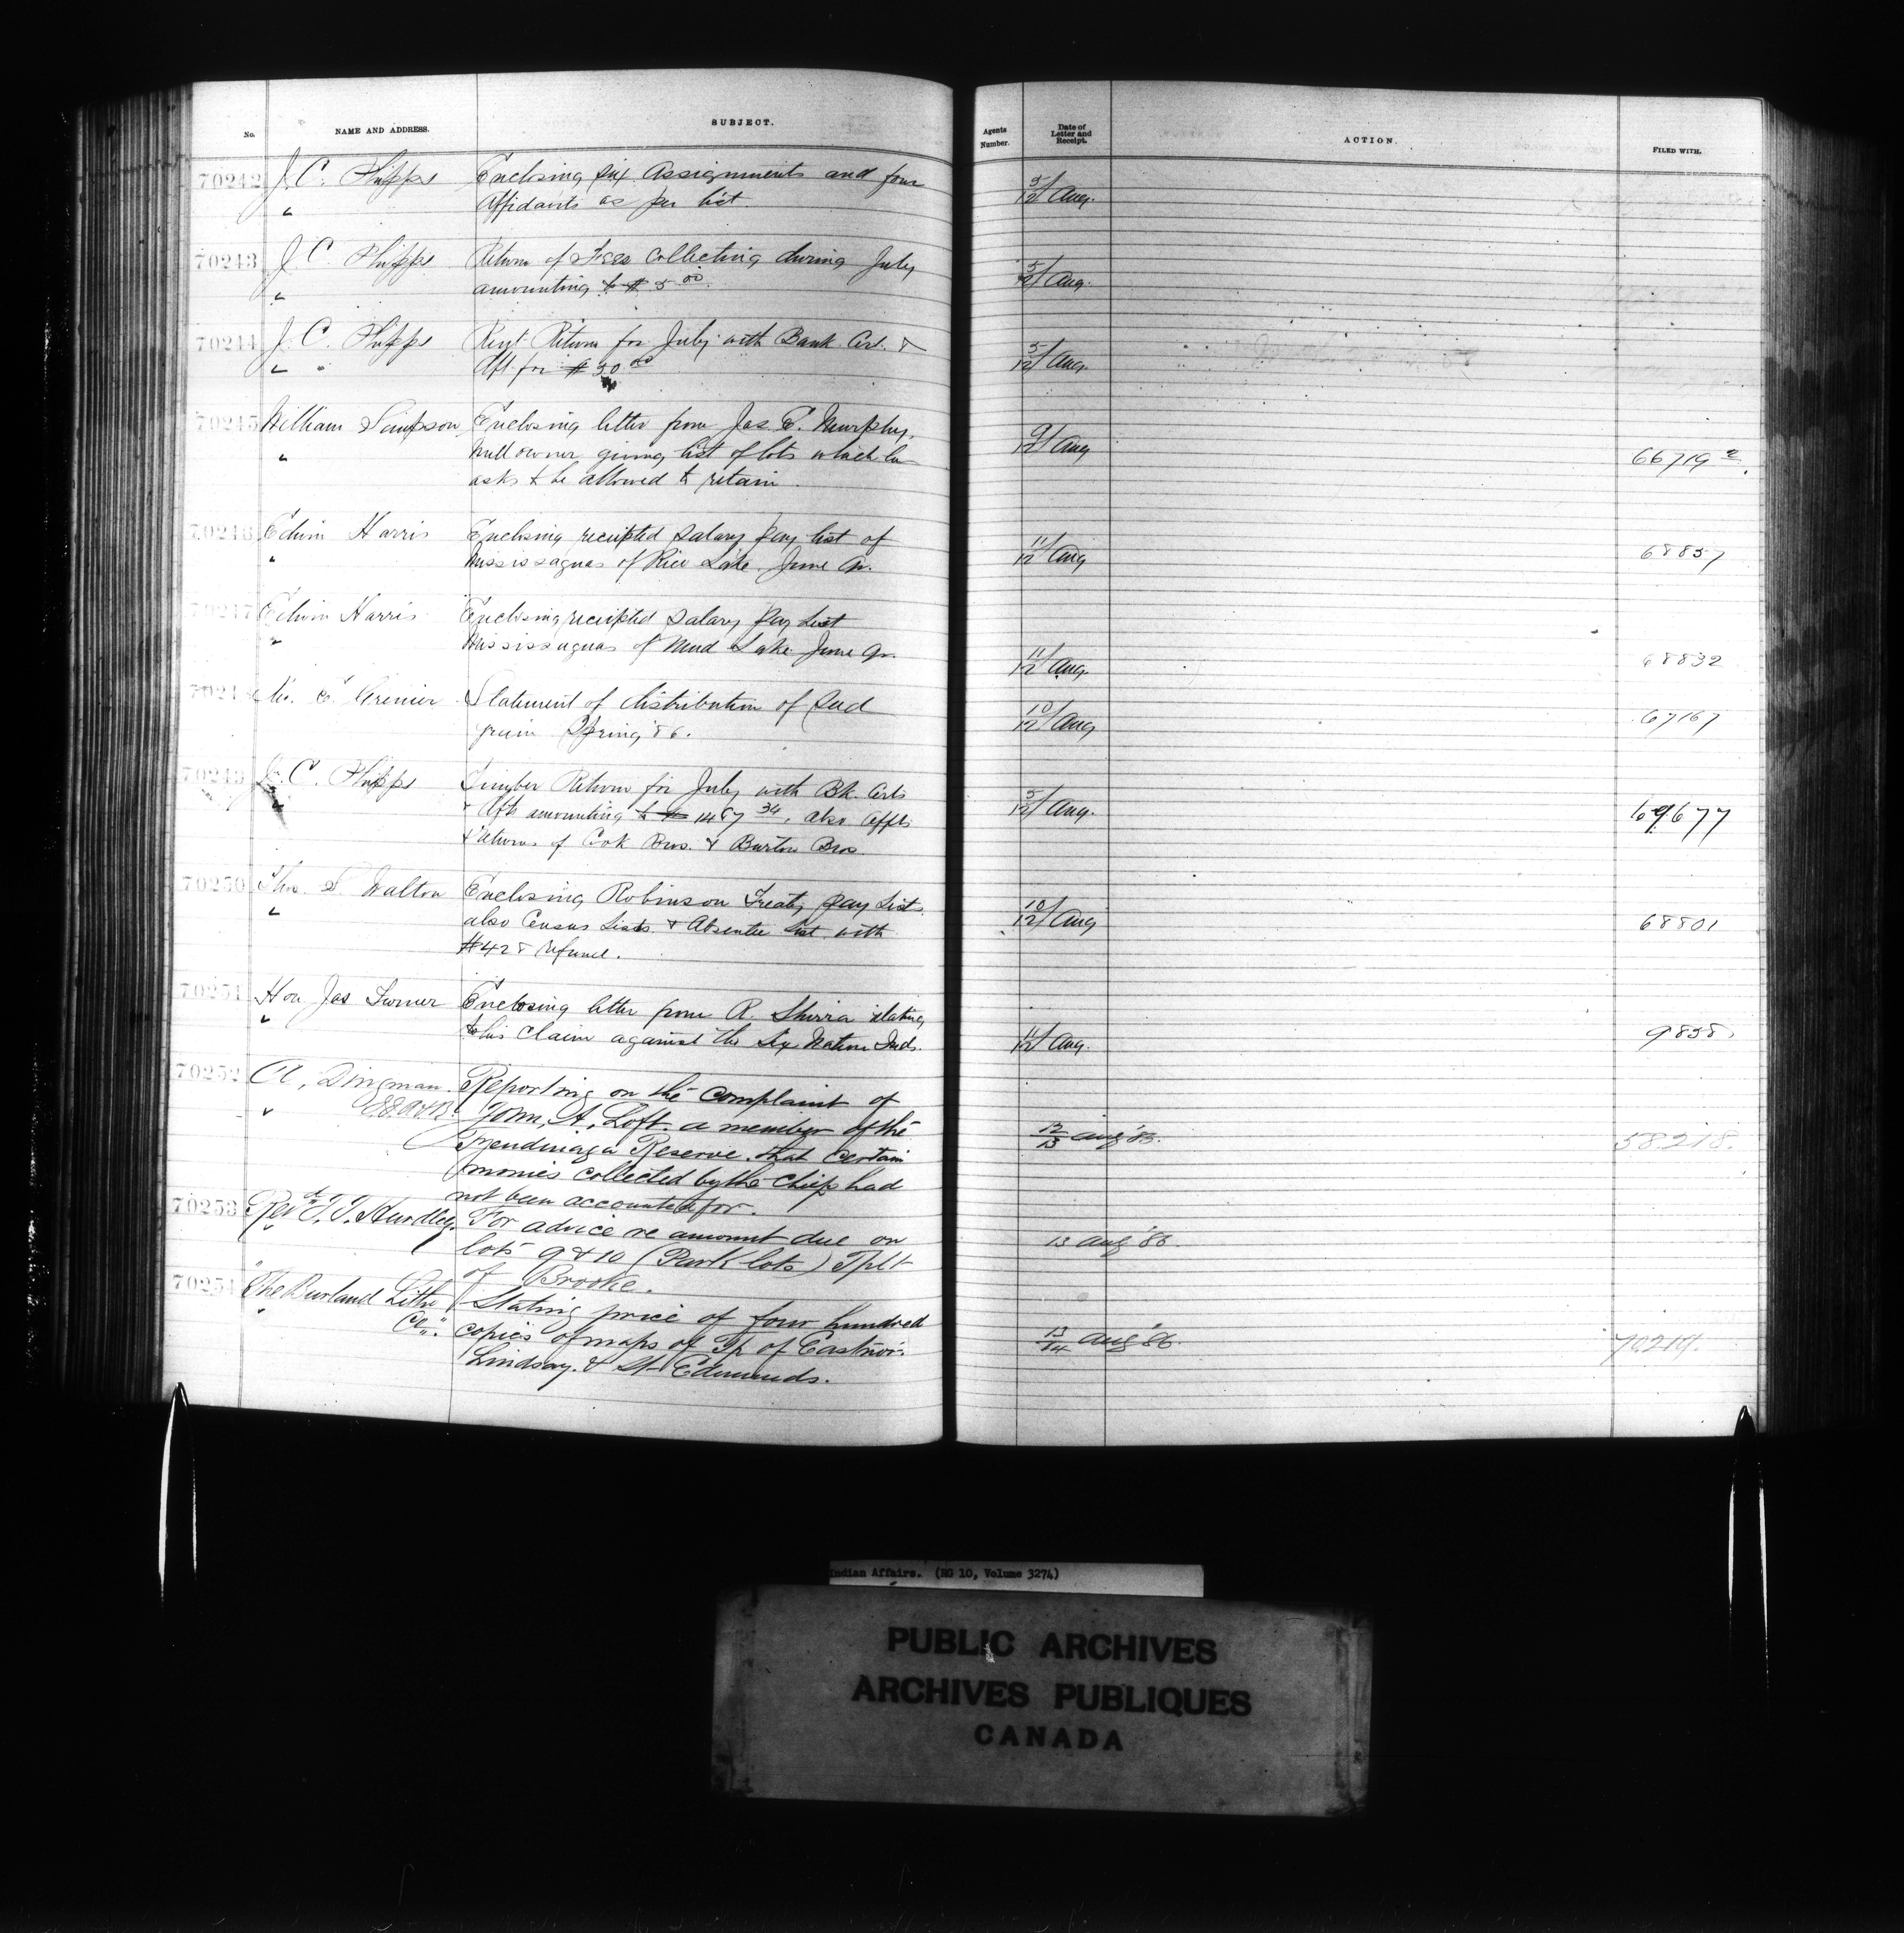 No. NAME AND ADDRESS. SUBJECT. Agents Number. Date of Letter and Receipt. ACTION. FILED WITH.
70242 J. C. Phipps Enclosing six Assignments and four 5/12 Aug.
" Affidavits as per list.
70243 J. C. Phipps Return of Fees collecting during July 5/12 Aug.
" amounting to $5.00.
70244 J. C. Phipps Rent Return for July with Bank Cert. & 5/12 Aug.
" " Dft for $30.00
70245 William Simpson Enclosing letter from Jas E. Murphy, 9/12 Aug
" Mill owner giving list of lots which he 66719-2.
asks to be allowed to retain.
70246 Edwin Harris Enclosing receipted salary pay list of 11/12 Aug 68857
" Mississaguas of Rice Lake. June Qr.
70247 Edwin Harris Enclosing receipted salary Pay List
" Mississaguas of Mud Lake June Qr. 11/12 Aug. 68832
70248 E. Grenier Statement of distribution of Seed 10/12 Aug 67167
grain Spring '86.
70249 J. C. Phipps Timber Return for July with Bk. Certs 5/12 Aug. 69677
" & Dfts amounting to $1467.34, also Affts
& Returns of Cook Bros. & Burton Bros
70250 Thos. S. Walton Enclosing Robinson Treaty Pay List 10/12 Aug 68801
" also Census Lists & Absentee List with
$428 refund.
70251 Hon Jas Turner Enclosing letter from R. Shirra relating
" to his claim against the Six Nation Inds. 11/12 Aug. 9838
70252 A. Dingman. Reporting on the complaint of
" John. A. Loft. a member of the
Tyendinaga Reserve. that certain 12/13 Aug '85. 58218.
monies collected by the Chief had
not been accounted for.
70253 Revd T. T. Hurdley. For advice re amount due on
" lots 9 & 10 (Park lots) Tplt 13 Aug '86
of Brooke.
70254 The Burland Litho Stating price of four hundred
" Co". copies of maps of Tp of Eastnor. 13/14 Aug '86. 70214.
Lindsay. & St Edmunds.
Indian Affairs. (RG 10, Volume 3274)
PUBLIC ARCHIVES
ARCHIVES PUBLIQUES
CANADA